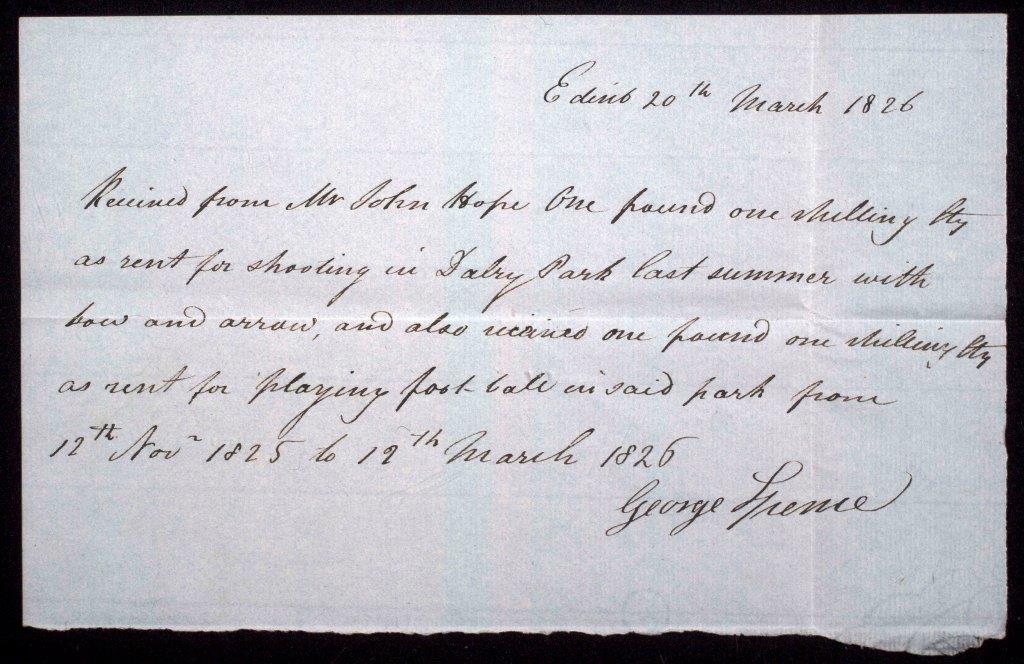 Edinb 20th March 1826
Received from Mr John Hope One pound one shilling Stg
as rent for shooting in Dalry Park last summer with
bow and arrow, and also received one pound one shilling Stg
as rent for playing foot-ball in said park from
12th Novr 1825 to 12th March 1826
George Spence